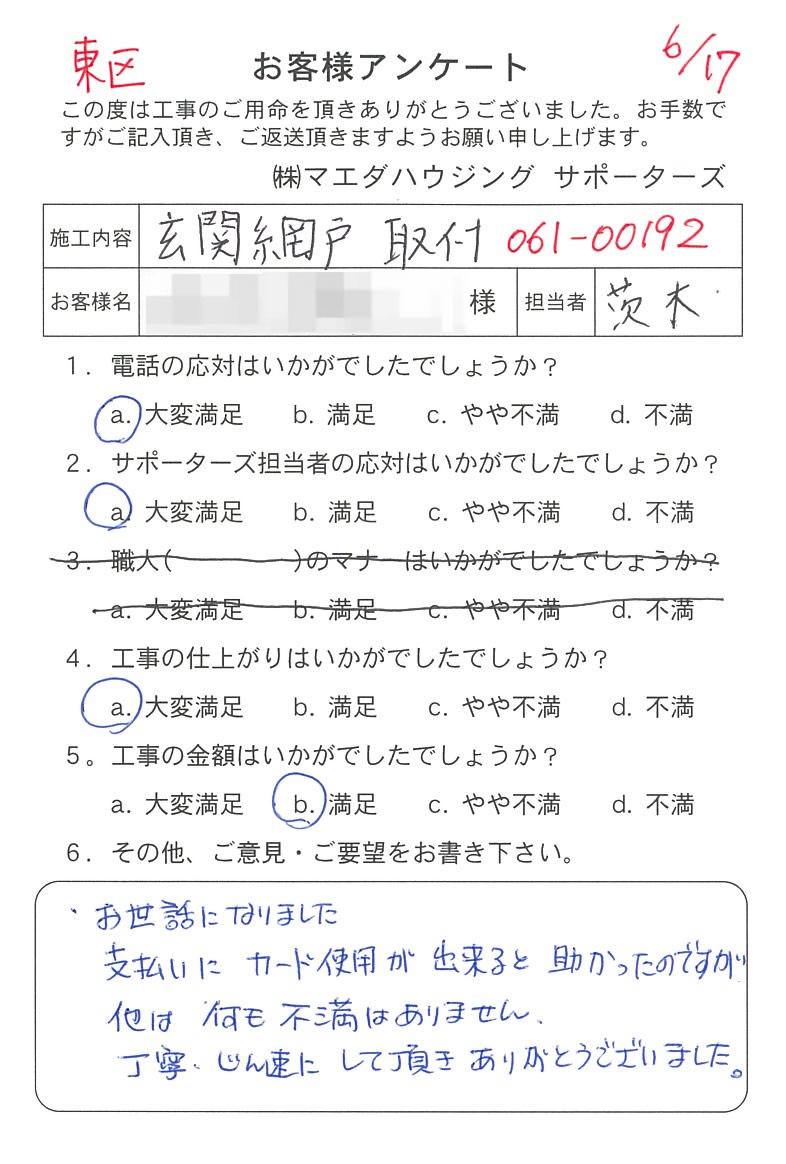 東区 お客様アンケート 6/17
この度は工事のご用命を頂きありがとうございました。お手数で
すがご記入頂き、ご返送頂きますようお願い申し上げます。
㈱マエダハウジング サポーターズ
施工内容 玄関網戸 取付 061-00192
お客様名 様 担当者 茨木
1. 電話の応対はいかがでしたでしょうか？
a. 大変満足 b. 満足 c. やや不満 d. 不満
2. サポーターズ担当者の応対はいかがでしたでしょうか？
a. 大変満足 b. 満足 c. やや不満 d. 不満
3. 職人( )のマナーはいかがでしたでしょうか？
a. 大変満足 b. 満足 c. やや不満 d. 不満
4. 工事の仕上がりはいかがでしたでしょうか？
a. 大変満足 b. 満足 c. やや不満 d. 不満
5。工事の金額はいかがでしたでしょうか？
a. 大変満足 b. 満足 c. やや不満 d. 不満
6. その他、ご意見・ご要望をお書き下さい。
・お世話になりました
支払いに カード使用が 出来ると 助かったのですが
他は 何も 不満はありません、
丁寧・じん速に して頂き ありがとうございました。